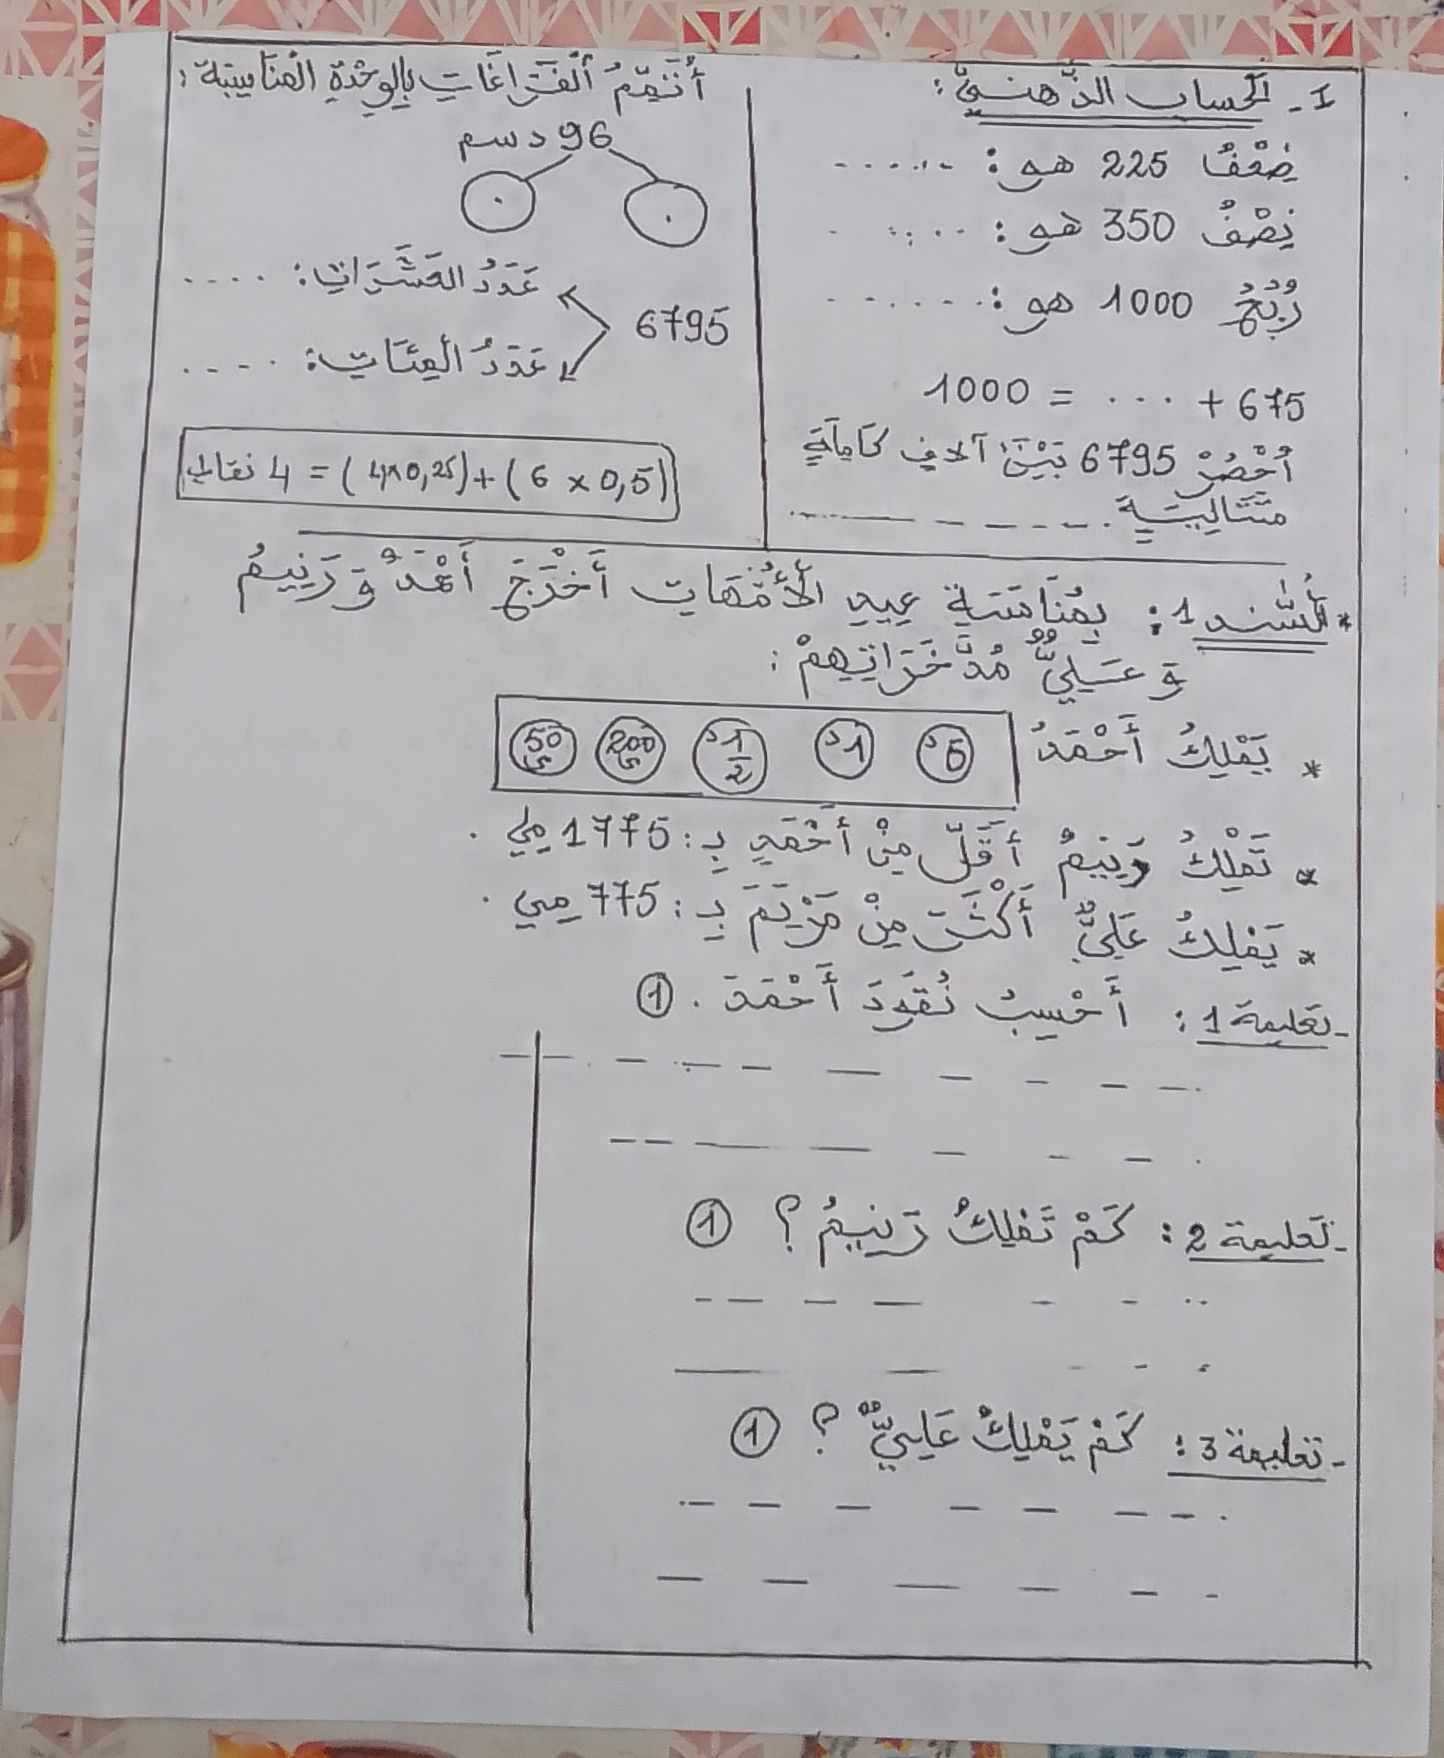 I - الحساب الذّهنيّ:
ضِعْفُ 225 هو: ......
نِصْفُ 350 هو: ......
رُبُعُ 1000 هو: ......
675 + ... = 1000
أُحْصُرْ 6795 بَيْنَ آلاف كَامِلَةٍ
مُتَتَالِيَةٍ. ------
أُتَمِّمُ الْفَرَاغَاتِ بِالوِحْدَةِ الْمُنَاسِبَة:
96 دسم
6795
عَدَدُ العَشَرَاتِ: ....
عَدَدُ الْمِئَاتِ: ....
(6 x 0,5) + (4x0,25) = 4 نقاط
* السّند 1: بِمُنَاسَبَةِ عِيدِ الْأُمَّهَاتِ أَخْرَجَ أَحْمَدُ وَ رَنِيمُ
وَ عَلِيٌّ مُدَّخَرَاتِهِمْ:
* يَمْلِكُ أَحْمَدُ 5د 1د 1/2د 200م 50م
* تَمْلِكُ رَنِيمُ أَقَلَّ مِنْ أَحْمَدِ بِـ: 1775 مِلي.
* يَمْلِكُ عَلِيٌّ أَكْثَرَ مِنْ مَرْيَمَ بِـ: 775 مِي.
- تعليمة 1: أَحْسِبُ نُقُودَ أَحْمَدَ. ①
- تَعليمة 2: كَمْ تَمْلِكُ رَنِيمُ؟ ①
- تعليمة 3: كَمْ يَمْلِكُ عَلِيٌّ؟ ①